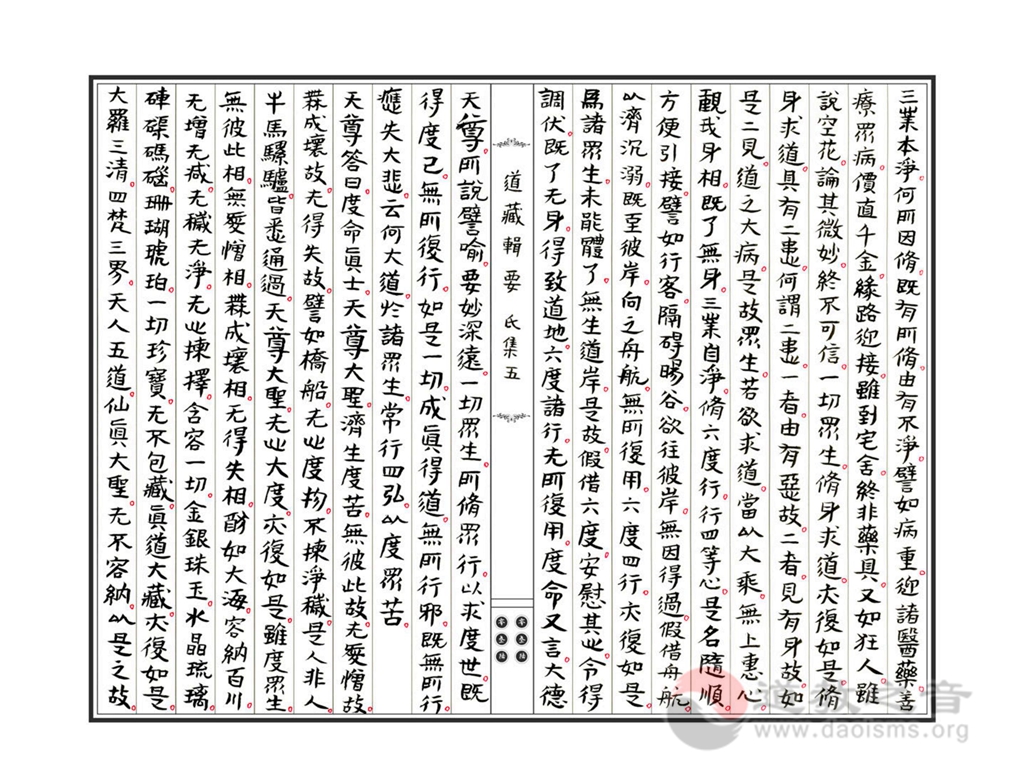 三業本淨何所因脩既有所脩由有不淨譬如病重迎諸醫藥善
療眾病價直千金緣路迎接雖到宅舍終非藥具又如狂人雖
說空花論其微妙終不可信一切眾生脩身求道亦復如是脩
身求道具有二患何謂二患一者由有惡故二者見有身故如
是二見道之大病是故眾生若欲求道當以大乘無上惠心
觀我身相既了無身三業自淨脩六度行行四等心是名隨順
方便引接譬如行客隔碍暘谷欲往彼岸無因得過假借舟航
以濟沉溺既至彼岸向之舟航無所復用六度四行亦復如是
為諸眾生未能體了無生道岸是故假借六度安慰其心令得
調伏既了无身得致道地六度諸行无所復用度命又言大德
道藏輯要 氐集五
天尊所說譬喻要妙深遠一切眾生所脩眾行以求度世既
得度已無所復行如是一切成真得道無所行邪既無所行
應失大悲云何大道於諸眾生常行四弘以度眾苦
天尊答曰度命真士天尊大聖濟生度苦無彼此故无愛憎故
無成壞故无得失故譬如橋船无心度物不揀淨穢是人非人
牛馬騾驢皆悉通過天尊大聖无心大度亦復如是雖度眾生
無彼此相無愛憎相無成壞相无得失相酧如大海容納百川
无增无減无穢无淨无心揀擇含容一切金銀珠玉水晶琉璃
硨磲碼碯珊瑚琥珀一切珍寶无不包藏真道大藏亦復如是
大羅三清四梵三界天人五道仙真大聖无不容納以是之故
道教之音
www.daoisms.org